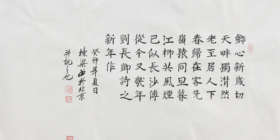 鄉心新歲切
天畔獨潸然
老至居人下
春歸在客先
嶺猿同旦暮
江柳共風煙
已似長沙傅
從今又幾年
劉長卿詩之
新年作
癸卯年夏日
於北京